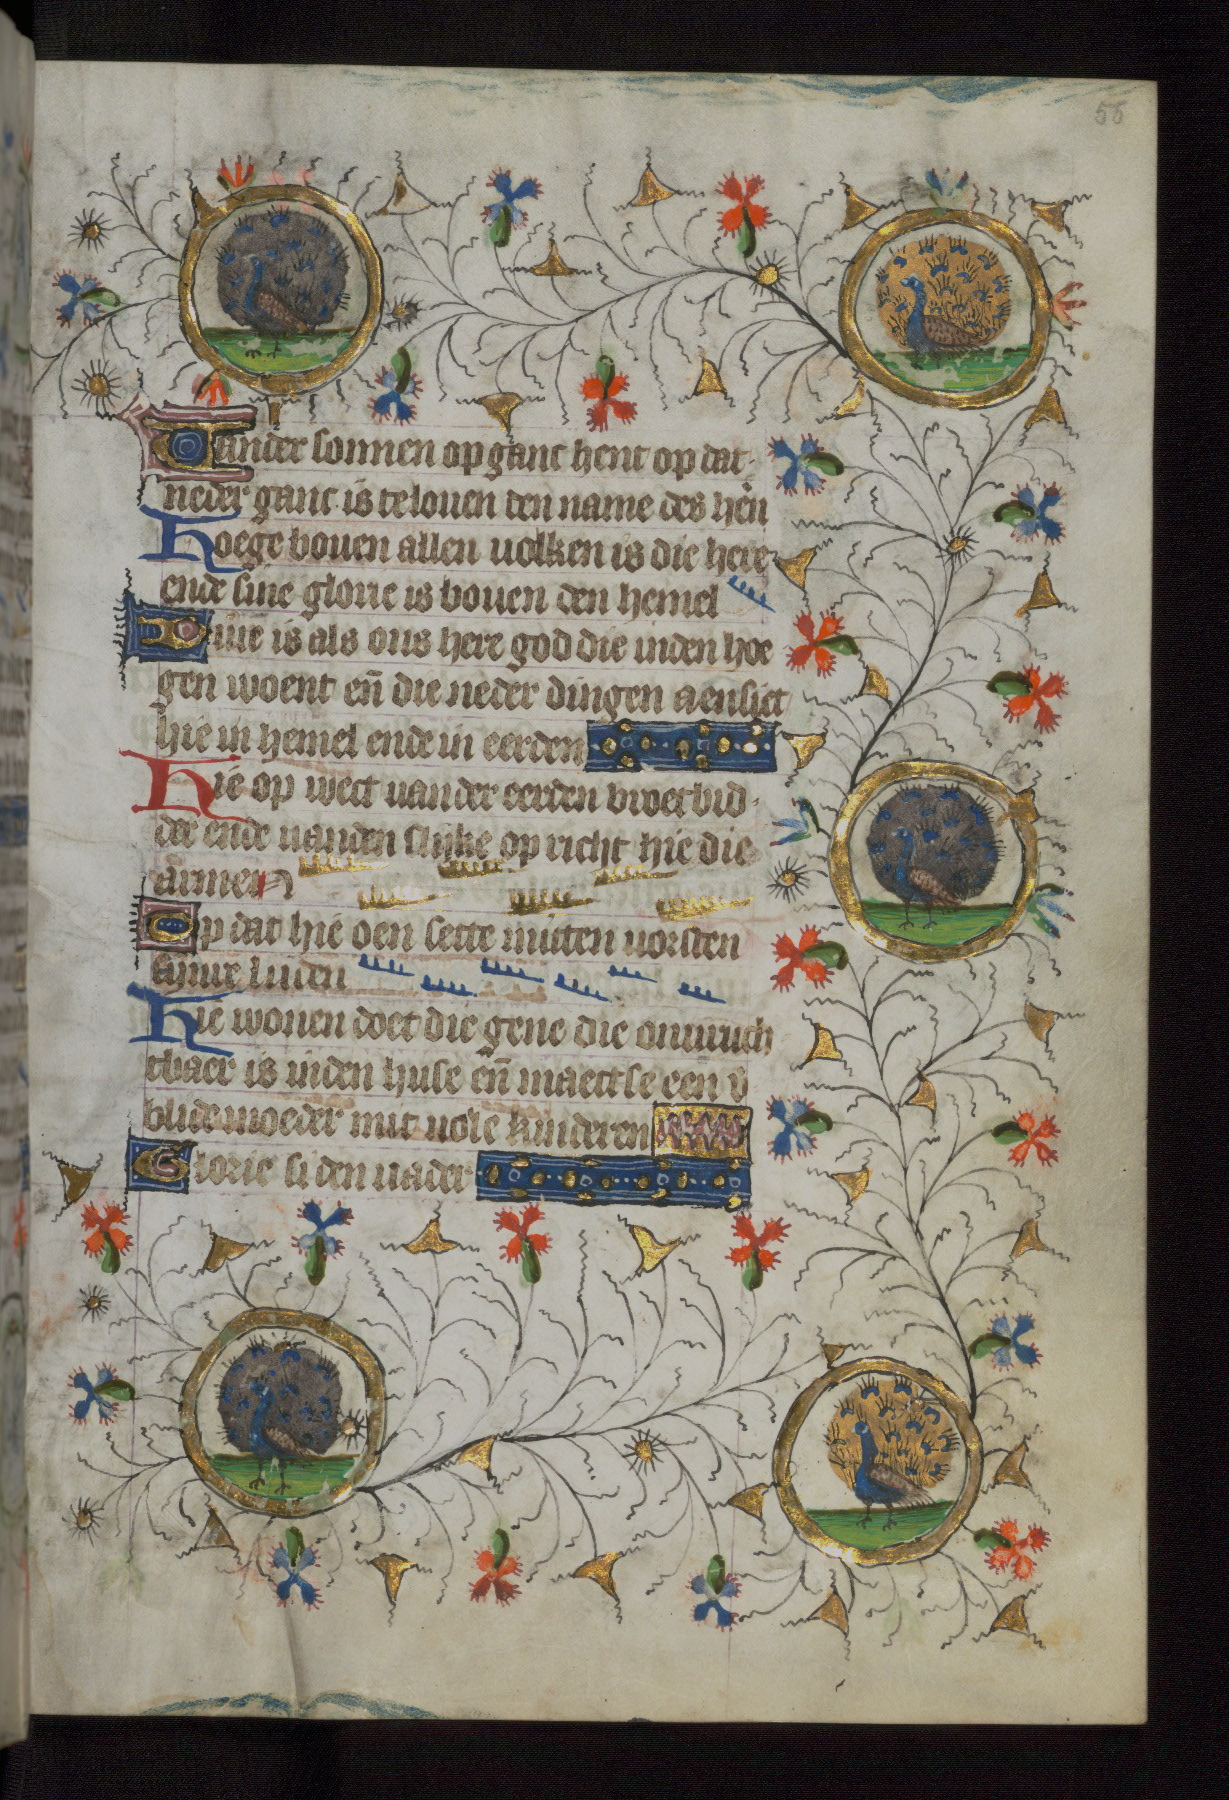 55
Vander sonnen opganc hent op dat
neder ganc is te louen den name des hēn
Hoege bouen allen uolken is die here
ende sine glorie is bouen den hemel
Wie is als ons here god die inden hoe
gen woent eñ die neder dingen aensiet
hie in hemel ende in eerden
Hie op wect uander eerden broet bid
der ende uanden slijke op richt hie die
armen
Op dat hie oen sette mitten uorsten
sijnre luden
Hie wonen doet die gene die onuruch
tbaer is inden huse eñ maect se een v̄
blide moeder mit uole kinderen
Glorie si den uader